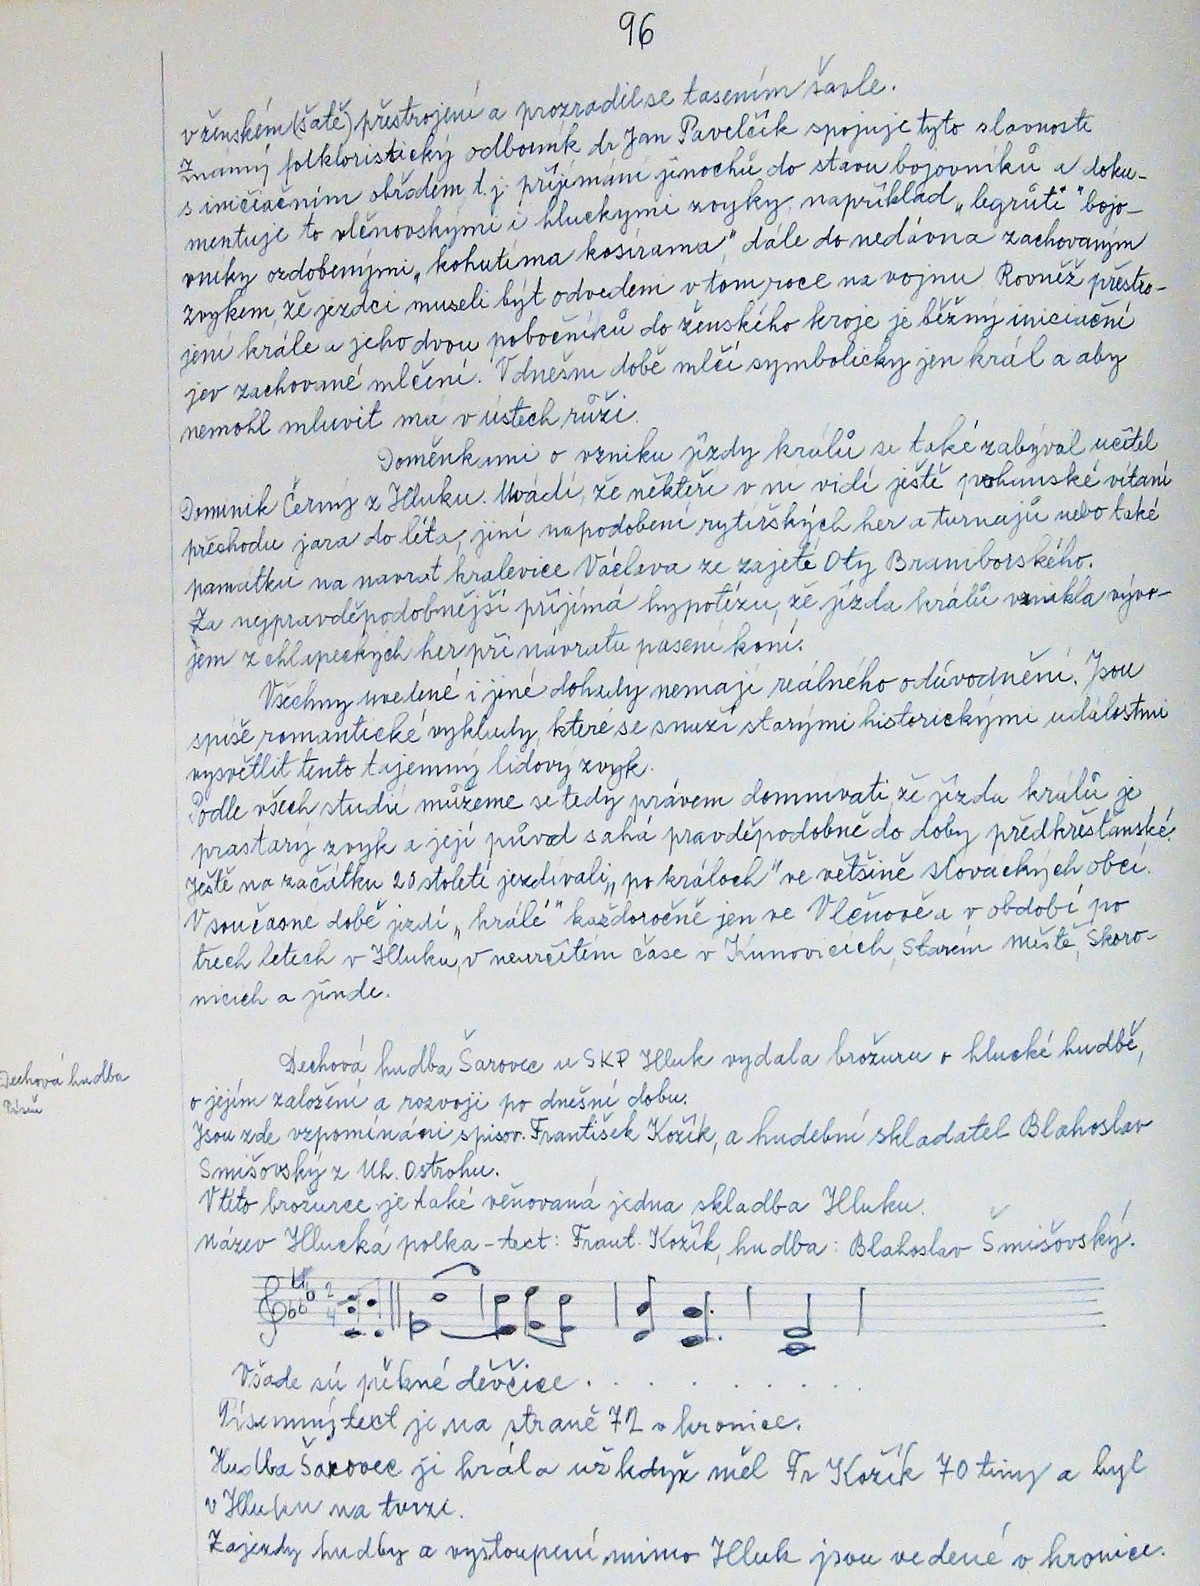 96
v ženském (šatě) přestrojení a prozradil se tasením šavle.
Známý folkloristický odborník dr Jan Pavelčík spojuje tyto slavnosti
s iniciačním obřadem, t.j. přijímání jinochů do stavu bojovníků a doku-
mentuje to vlčnovskými i hluckými zvyky, například „legrůti" bojo-
vníky ozdobenými „kohutíma kosírama", dále do nedávna zachovaným
zvykem, že jezdci museli být odvedeni v tom roce na vojnu. Rovněž přestro-
jení krále a jeho dvou pobočníků do ženského kroje je běžný iniciační
jev zachované mlčení. V dnešní době mlčí symbolicky jen král a aby
nemohl mluvit má v ústech růži.
Doměnkami o vzniku jízdy králů se také zabýval učitel
Dominik Černý z Hluku. Uvádí, že někteří v ní vidí ještě pohanské vítání
přechodu jara do léta, jiní napodobení rytířských her a turnajů nebo také
památku na navrat kralevice Václava ze zajetí Oty Braniborského.
Za nejpravděpodobnější přijímá hypotézu, že jízda králů vznikla vývo-
jem z chlapeckých her při návratu pasení koní.
Všechny uvedené i jiné dohady nemají reálného odůvodnění. Jsou
spíše romantické vyklady, které se snaží starými historickými událostmi
vysvětlit tento tajemný lidový zvyk.
Podle všech studií můžeme se tedy právem domnívati, že jízda králů je
prastarý zvyk a její původ sahá pravděpodobně do doby předkřesťanské.
Ještě na začátku 20 století jezdívali „po králoch" ve většině slováckých obcí.
V současné době jezdí „králé" každoročně jen ve Vlčnově a v období po
třech letech v Hluku, v neurčitém čase v Kunovicích, Starém Městě, Skoro-
nicích a jinde.
Dechová hudba
Dechová hudba Šarovec u SKP Hluk vydala brožuru o hlucké hudbě,
o jejím založení a rozvoji po dnešní dobu.
Jsou zde vzpomínáni spisov. František Kožík, a hudební skladatel Blahoslav
Smišovský z Uh. Ostrohu.
V této brožurce je také věnovaná jedna skladba Hluku.
Název Hlucká polka - text: Frant. Kožík, hudba: Blahoslav Smišovský.
2
4
Všade sú pěkné děvčice . . . . . . . . .
Písemný text je na straně 72 v kronice.
Hudba Šarovec ji hrála už když měl Fr Kožík 70 tiny a byl
v Hluku na tvrzi.
Zajezdy hudby a vystoupení mimo Hluk jsou vedené v kronice.